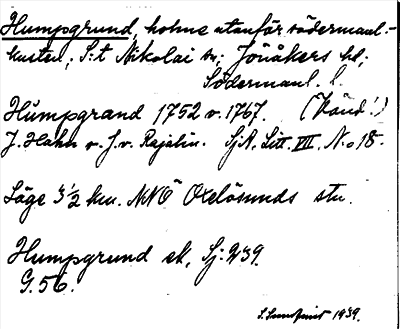 Humpgrund, holme utanför södermanl.-
kusten, S:t Nikolai sn, Jönåkers hd,
Södermanl. l.
Humpgrand 1752 v. 1767. (Känd!)
J. Hahn o. J. v. Rajalin. SjA. Litt. VII. No 18.
Läge 3 1/2 km. NNÖ Oxelösunds stn.
Humpgrund ek, Sj. 239.
G. 56.
1939.